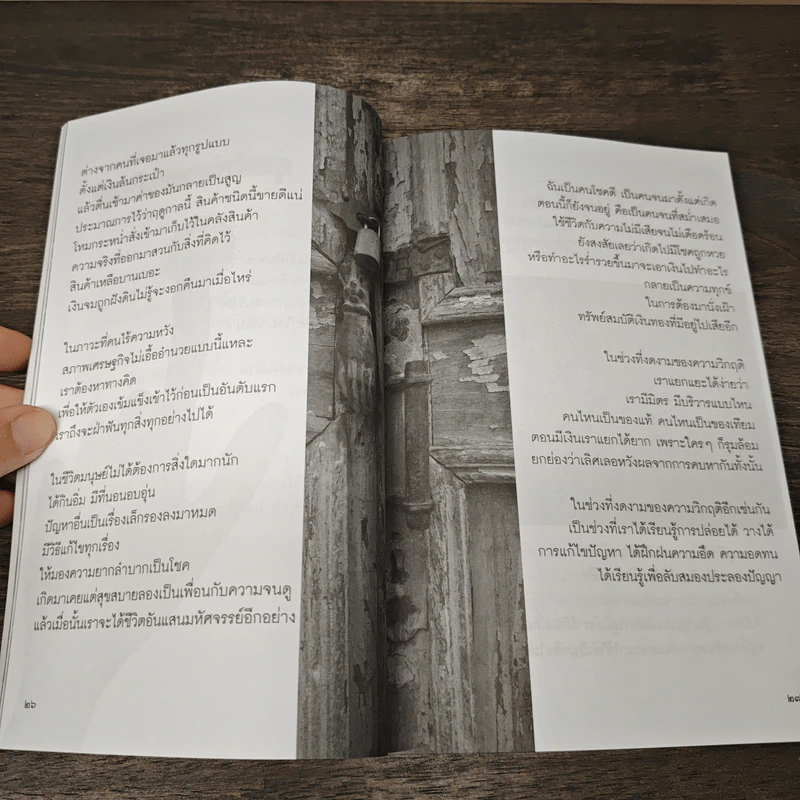 ต่างจากคนที่เจอมาแล้วทุกรูปแบบ
ตั้งแต่เงินล้นกระเป๋า
แล้วตื่นเช้ามาค่าของมันกลายเป็นสูญ
ประมาณการไว้ว่าฤดูกาลนี้ สินค้าชนิดนี้ขายดีแน่
โหมกระหน่ำสั่งเข้ามาเก็บไว้ในคลังสินค้า
ความจริงที่ออกมาสวนกับสิ่งที่คิดไว้
สินค้าเหลือบานเบอะ
เงินจมถูกฝังดินไม่รู้จะงอกคืนมาเมื่อไหร่
ในภาวะที่คนไร้ความหวัง
สภาพเศรษฐกิจไม่เอื้ออำนวยแบบนี้แหละ
เราต้องหาทางคิด
เพื่อให้ตัวเองเข้มแข็งเข้าไว้ก่อนเป็นอันดับแรก
เราถึงจะฝ่าฟันทุกสิ่งทุกอย่างไปได้
ในชีวิตมนุษย์ไม่ได้ต้องการสิ่งใดมากนัก
ได้กินอิ่ม มีที่นอนอบอุ่น
ปัญหาอื่นเป็นเรื่องเล็กรองลงมาหมด
มีวิธีแก้ไขทุกเรื่อง
ให้มองความยากลำบากเป็นโชค
เกิดมาเคยแต่สุขสบายลองเป็นเพื่อนกับความจนดู
แล้วเมื่อนั้นเราจะได้ชีวิตอันแสนมหัศจรรย์อีกอย่าง
๒๖
ฉันเป็นคนโชคดี เป็นคนจนมาตั้งแต่เกิด
ตอนนี้ก็ยังจนอยู่ คือเป็นคนจนที่สม่ำเสมอ
ใช้ชีวิตกับความไม่มีเสียจนไม่เดือดร้อน
ยังสงสัยเลยว่าเกิดไปมีโชคถูกหวย
หรือทำอะไรร่ำรวยขึ้นมาจะเอาเงินไปทำอะไร
กลายเป็นความทุกข์
ในการต้องมานั่งเฝ้า
ทรัพย์สมบัติเงินทองที่มีอยู่ไปเสียอีก
ในช่วงที่งดงามของความวิกฤติ
เราแยกแยะได้ง่ายว่า
เรามีมิตร มีบริวารแบบไหน
คนไหนเป็นของแท้ คนไหนเป็นของเทียม
ตอนมีเงินเราแยกได้ยาก เพราะใครๆ ก็รุมล้อม
ยกย่องว่าเลิศเลอหวังผลจากการคบหากันทั้งนั้น
ในช่วงที่งดงามของความวิกฤติอีกเช่นกัน
เป็นช่วงที่เราได้เรียนรู้การปล่อยได้ วางได้
การแก้ไขปัญหา ได้ฝึกฝนความอึด ความอดทน
ได้เรียนรู้เพื่อลับสมองประลองปัญญา
๒๗